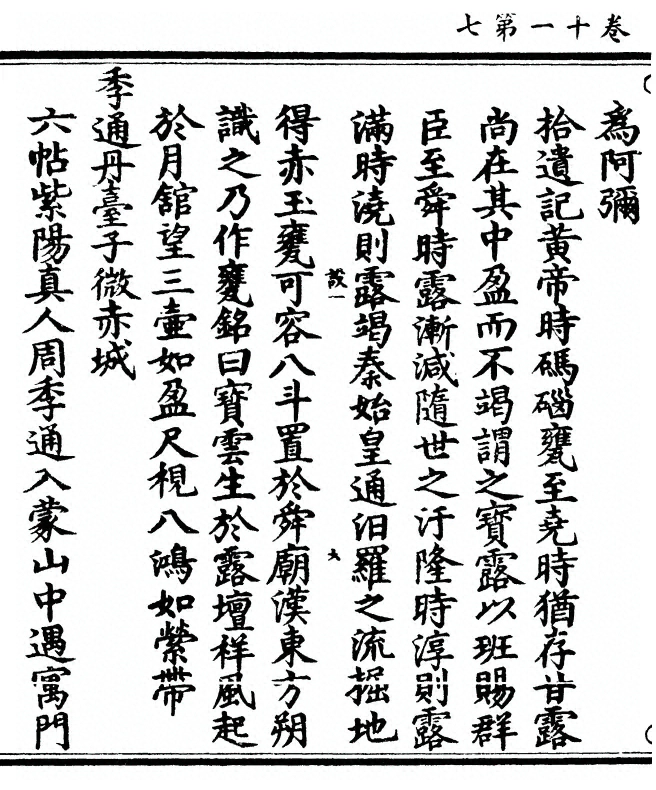 卷十一第七
為阿彌
拾遺記黃帝時碼碯甕至堯時猶存甘露
尚在其中盈而不竭謂之寶露以班賜群
臣至舜時露漸減隨世之汙隆時淳則露
滿時澆則露竭秦始皇通汨羅之流掘地
得赤玉甕可容八斗置於舜廟漢東方朔
識之乃作甕銘曰寶雲生於露壇祥風起
於月舘望三壺如盈尺視八鴻如縈帶
季通丹臺子微赤城
六帖紫陽真人周季通入蒙山中遇寗門